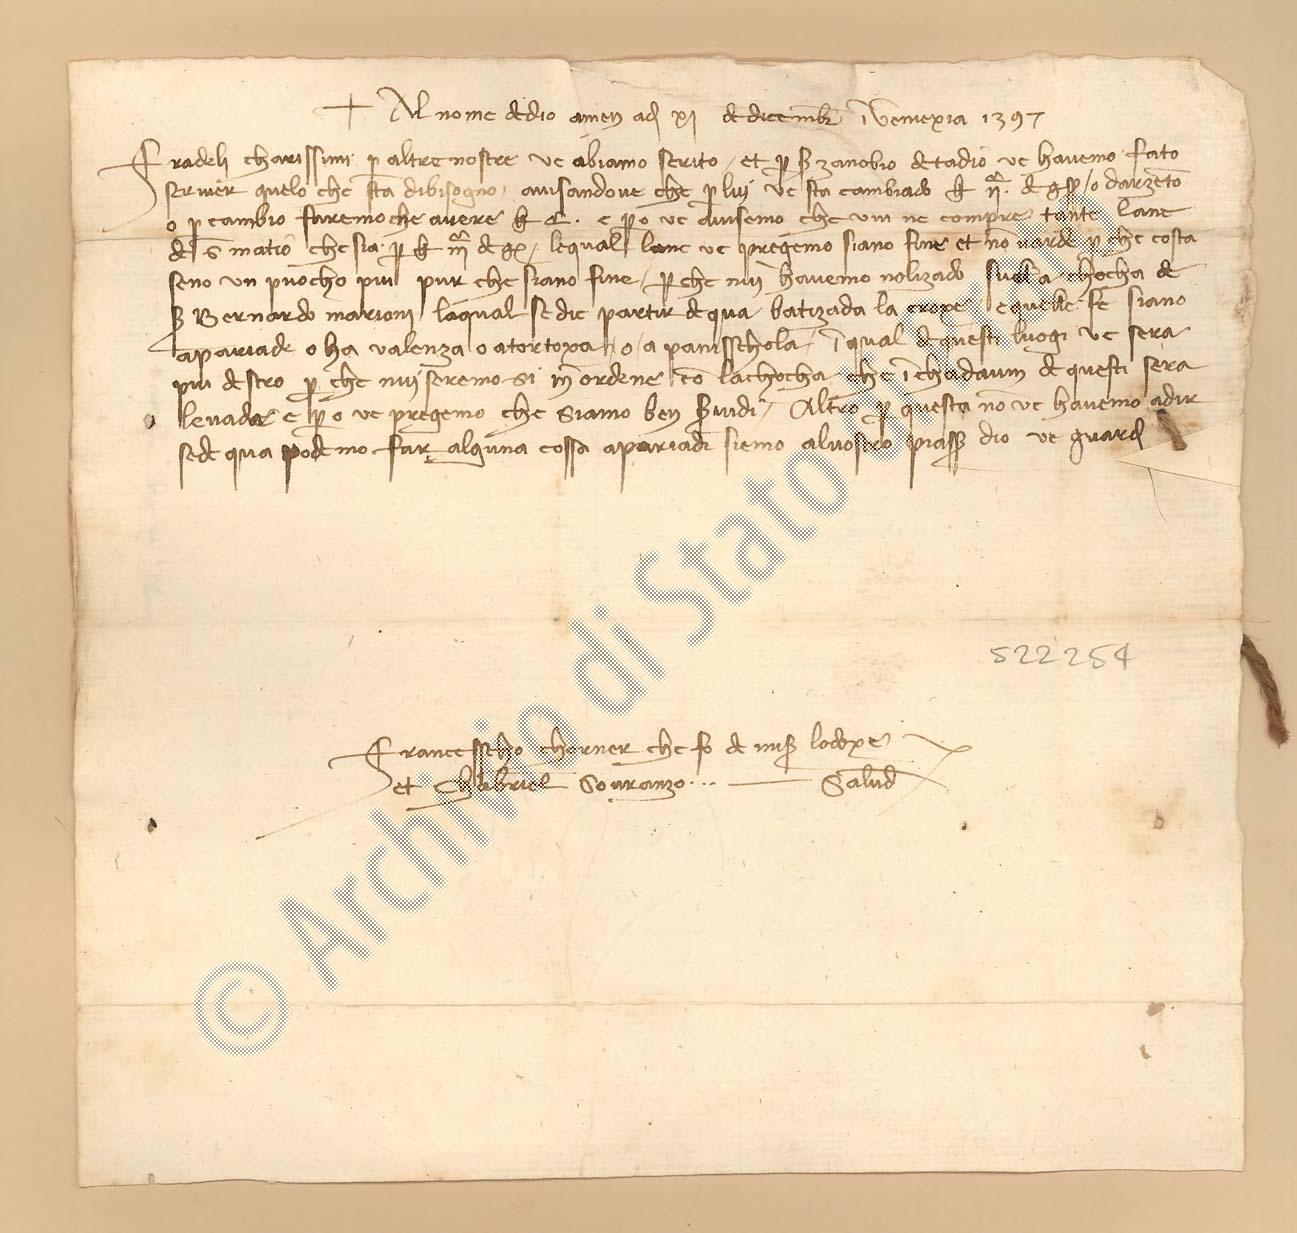 + Al nome de dio amen adi xj de dicembr i Veniexia 1397
Fradeli charissimi p altre nostre ve abiamo scrito / et p s zanobio de tadio ve havemo fato
scriver quelo che sta dibisogno / avisandove che p lui ve sta cambiado / o darzeto
o p cambio faremo che avere e p o ve avisemo che vui ne compre tante lane
de s matio che sia p / le qual lane ve pregemo siano fine et no varde p che costa
seno un puocho piu pur che siano fine / p che nui havemo nolizado sula chocha de
s Bernardo marioni la qual se die partir de qua batizada la croxe e quele fe siano
apariade o ha valenza o a tortoxa / o / a panisschola / i qual de questi luogi ve sera
piu destro p che nui seremo si in ordene co la chocha che i chadaun de questi sera
levada e p o ve pregemo che siamo ben s vidi / Altro p questa no ve havemo a dir
se de qua podemo far alguna cossa apariadi siemo al vostro pias dio ve guard
522254
Francesscho chorner che fo de mis lodoxe
et Ghabriel Souranzo ... Salud
© Archivio di Stato di Prato